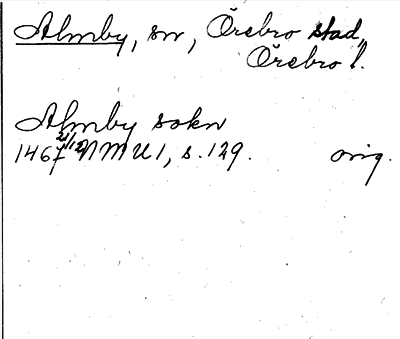 Almby, sn, Örebro stad,
Örebro l.
Almby sokn
1467 21/12 NMU1, s. 129. orig.